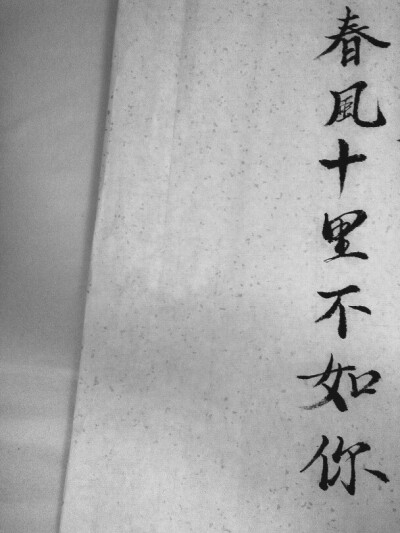 春風十里不如你